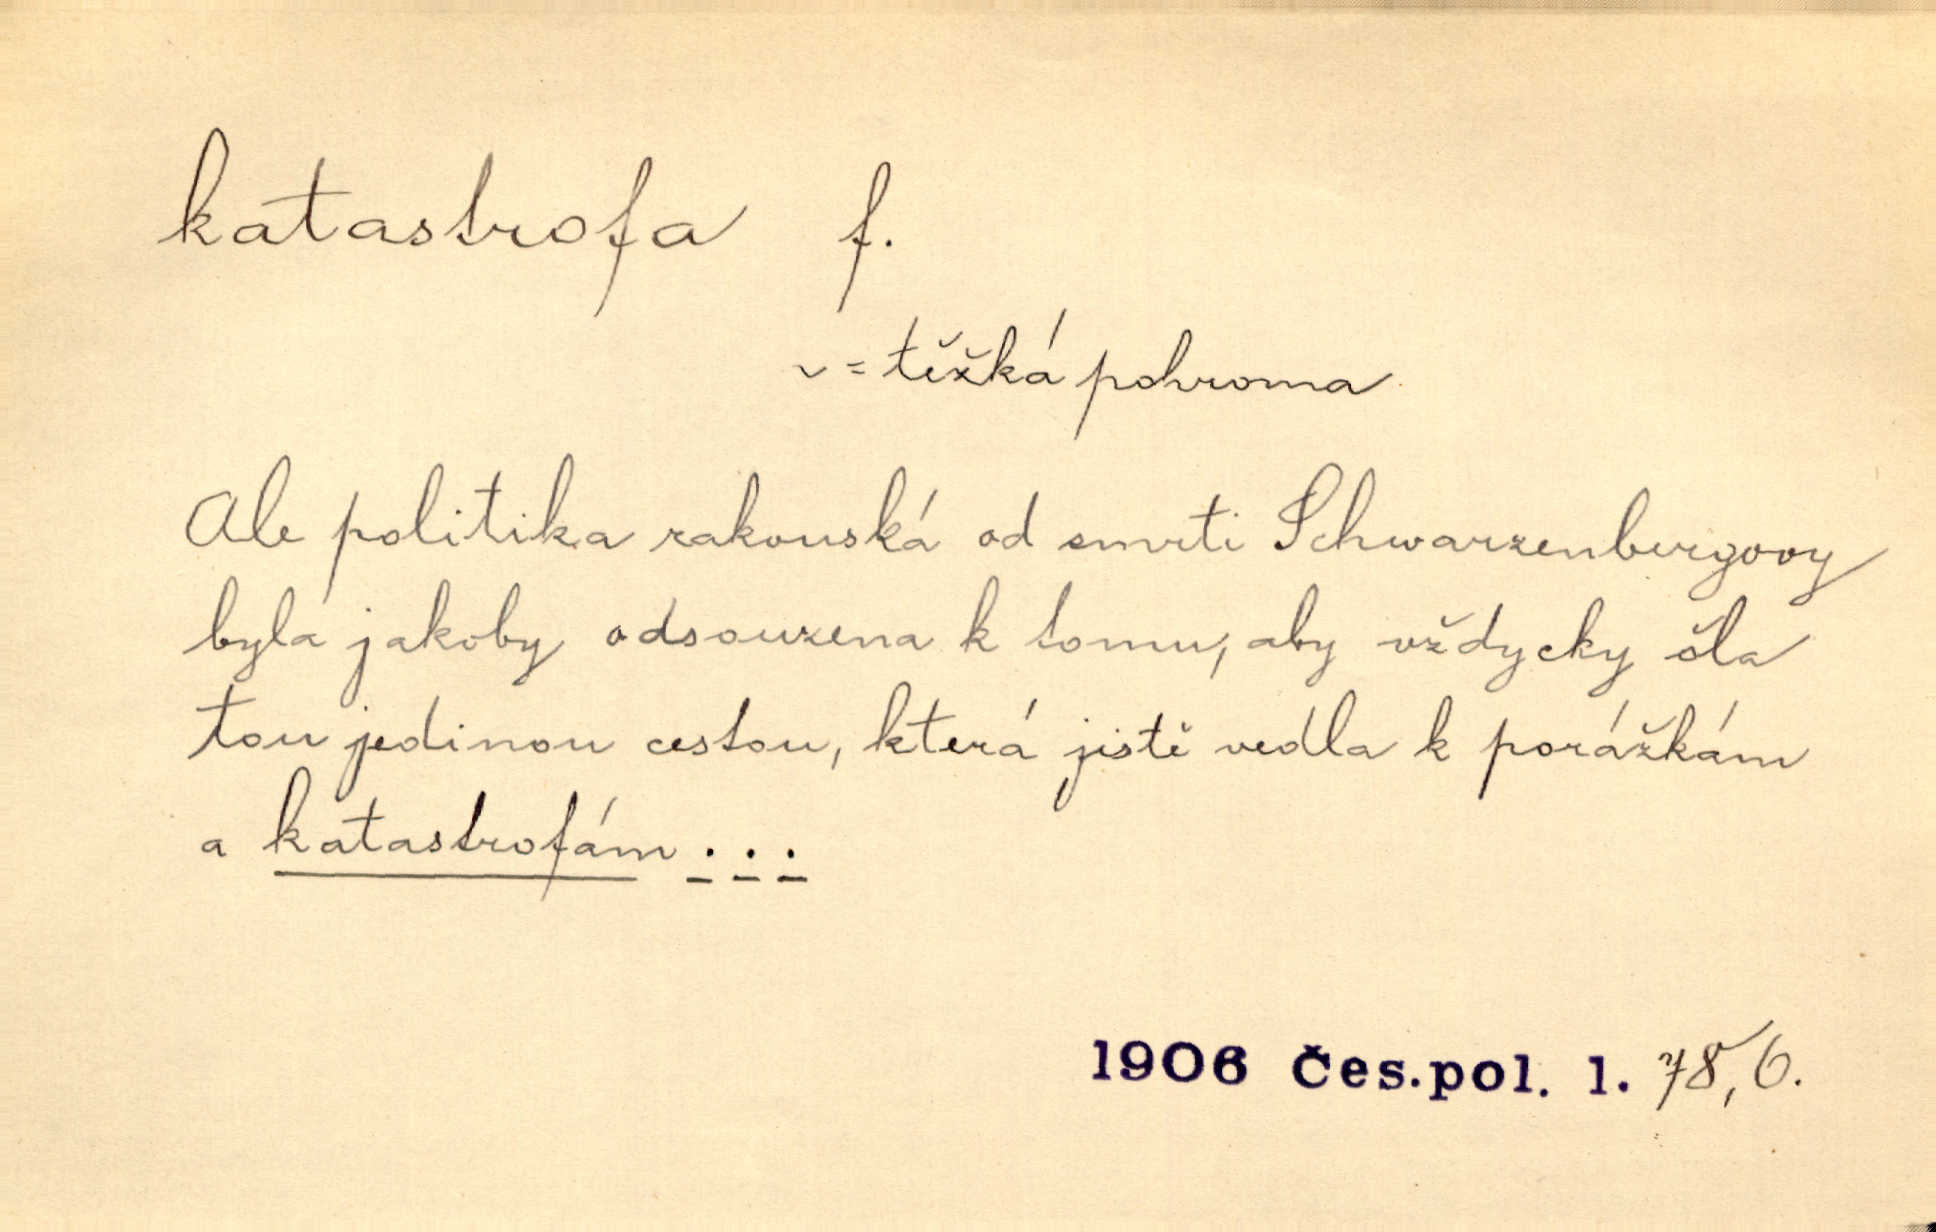 katastrofa f.
~ = těžká pohroma
Ale politika rakouská od smrti Schwarzenbergovy
byla jakoby odsouzena k tomu, aby vždycky šla
tou jedinou cestou, která jistě vedla k porážkám
a katastrofám ...
1906 Čes. pol. 1. 78, 6.